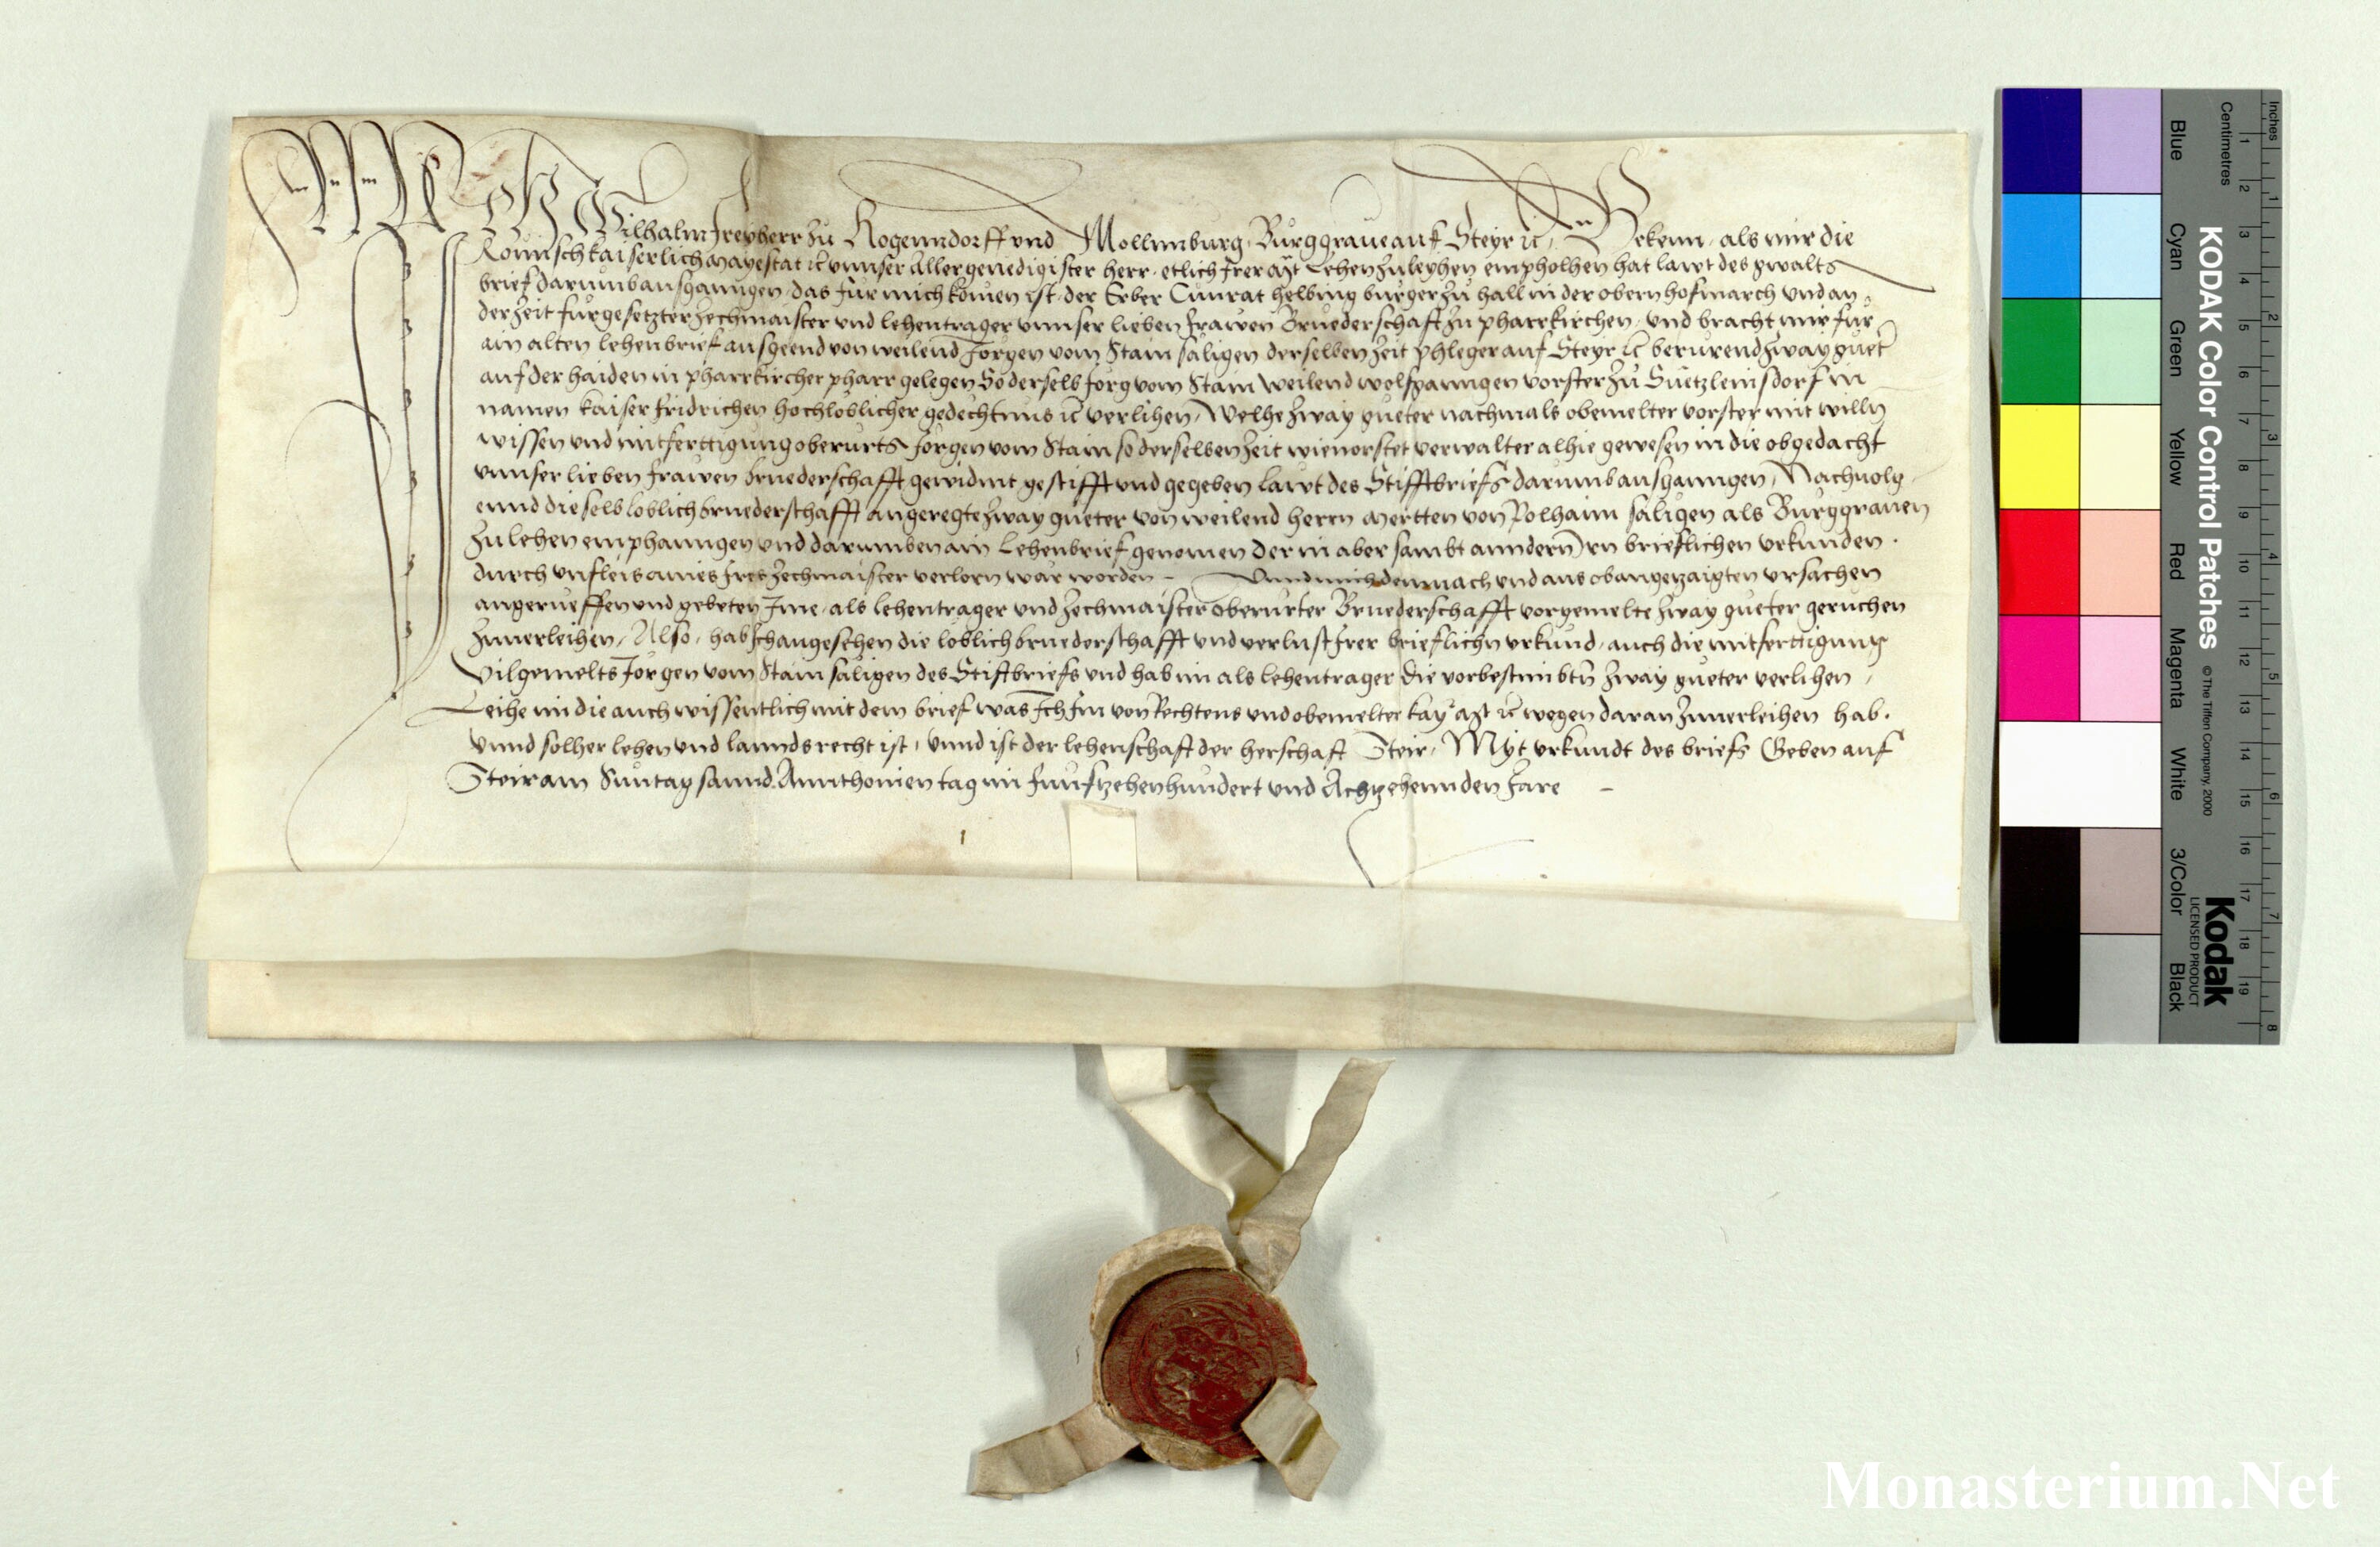 Ich Wilhalm freyherr zu Rogenndorff und Mollnnburg, Burggraue auf Steyr ic, Bekenn, als mir die
Romisch kaiserlich Mayestat ic unnser Aller genedigister herr, etlich Irer Mayt Lehen zu leyhen empholhen hat lawt des gwalts
brief darumb ausganngen, das fur mich komen ist, der Erber Cunrat helbing burger zu hall in der obern hofmarch und an
der zeit furgesetzter zechmaister und lehentrager unnser lieben frawen Bruederschaft zu pharrkirchen, und bracht mir fur
ain alten lehenbrief ausgeend von weilend Jorgen vom Stain saligen derselben zeit phleger auf Steyr ic berurend zway guet
auf der haiden in pharrkircher pharr gelegen So derselb Jorg vom Stain weilend wolfganngen vorster zu Suetzleinsdorf in
namen kaiser fridrichen hochloblicher gedechtnus ic verlihen, Welhe zway gueter nachmals obemelter vorster mit willn
wissen und mitferttigung oberurts Jorgen vom Stain so derselben zeit wie vorstet verwalter alhie gewesen in die obgedacht
unnser lieben frawen bruederschafft gewidmt gestifft und gegeben lawt des Stifftbriefs darumb ausganngen, Nachuolg
ennd die selb loblich bruederschafft angeregte zway gueter von weilend herrn Mertten von Polhaim saligen als Burggrauen
zu lehen emphanngen und darumben ain Lehenbrief genomen der in aber sambt anndern Irn brieflichen urkunden
durch unfleis aines Irer zechmaister verlorn war worden - Unnd mich demnach und aus obangezaigten ursachen
angerueffen und gebeten Ime, als lehentrager und zechmaister oberurter Bruederschafft vorgemelte zway gueter geruchen
zuuerleihen, Also, hab Ich angesehen die loblich bruederschafft und verlust Irer brieflichn urkund, auch die mitferttigung
vilgemelts Jorgen vom Stain saligen des Stiftbriefs und hab im als lehentrager die vorbestimbtn zway gueter verlihen,
Leihe im die auch wissentlich mit dem brief was Ich Im von Rechtens und obemelter kay Mayt ic wegen daran zuuerleihen hab.
Unnd solher lehen und lanndsrecht ist, Unnd ist der lehenschaft der herschaft Steir, Myt urkundt des briefs Geben auf
Steir am Suntag sannd Annthonien tag im funftzehenhundert und Achtzehennden Jare -
KODAK Color Control Patches © The Tiffen Company, 2000
Kodak
LICENSED PRODUCT
Blue Cyan Green Yellow Red Magenta White 3/Color Black
Centimetres 1 2 3 4 5 6 7 8 9 10 11 12 13 14 15 16 17 18 19
Inches 1 2 3 4 5 6 7 8
Monasterium.Net